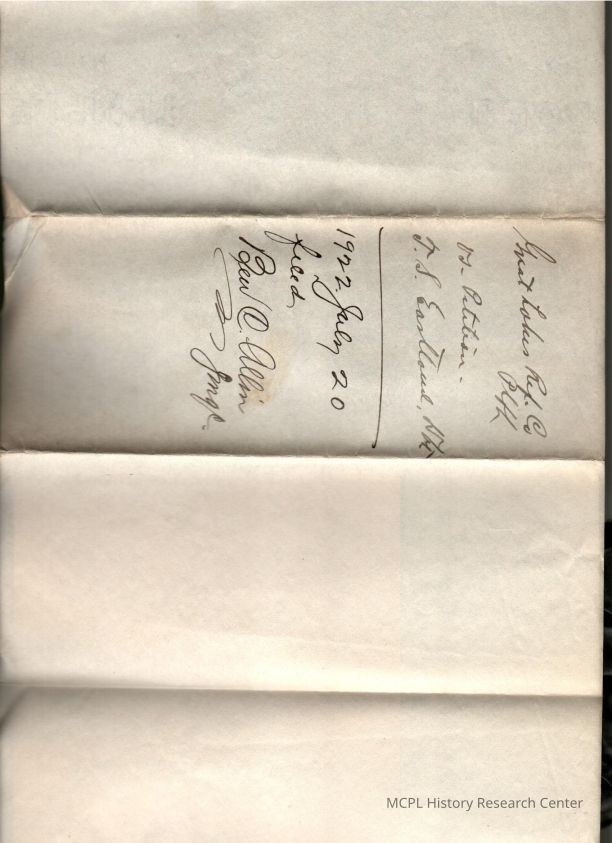 Great Lakes Ref. Co
Plff
vs. Petition.
T. S. Eastland, Df
1922 July 20
filed
Ben C. Allin
Jmgf.
MCPL History Research Center